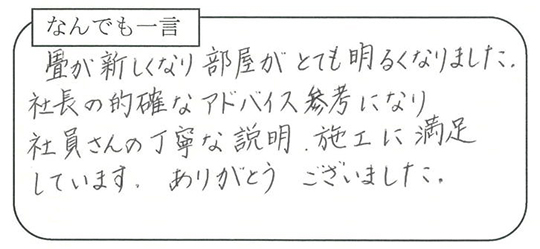 なんでも一言
畳が新しくなり部屋がとても明るくなりました.
社長の的確なアドバイス参考になり
社員さんの丁寧な説明.施工に満足
しています. ありがとう ございました。